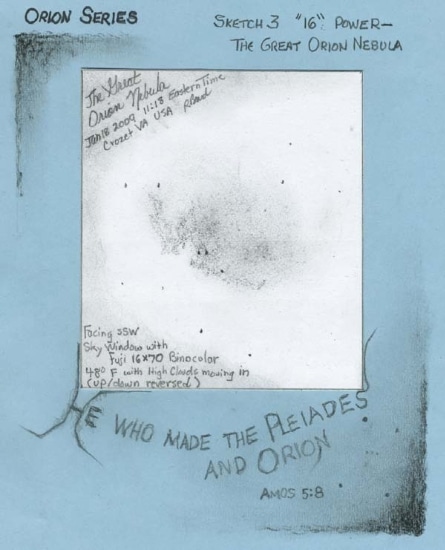 ORION SERIES
SKETCH 3 "16" POWER-
THE GREAT ORION NEBULA
The Great
Orion Nebula
Jan 18 2009 11:18 Eastern Time
Crozet VA USA
Facing SSW
Sky Window with
Fuji 16x70 Binocolar
48° F with High Clouds moving in
(up/down reversed)
HE WHO MADE THE PLEIADES
AND ORION
AMOS 5:8